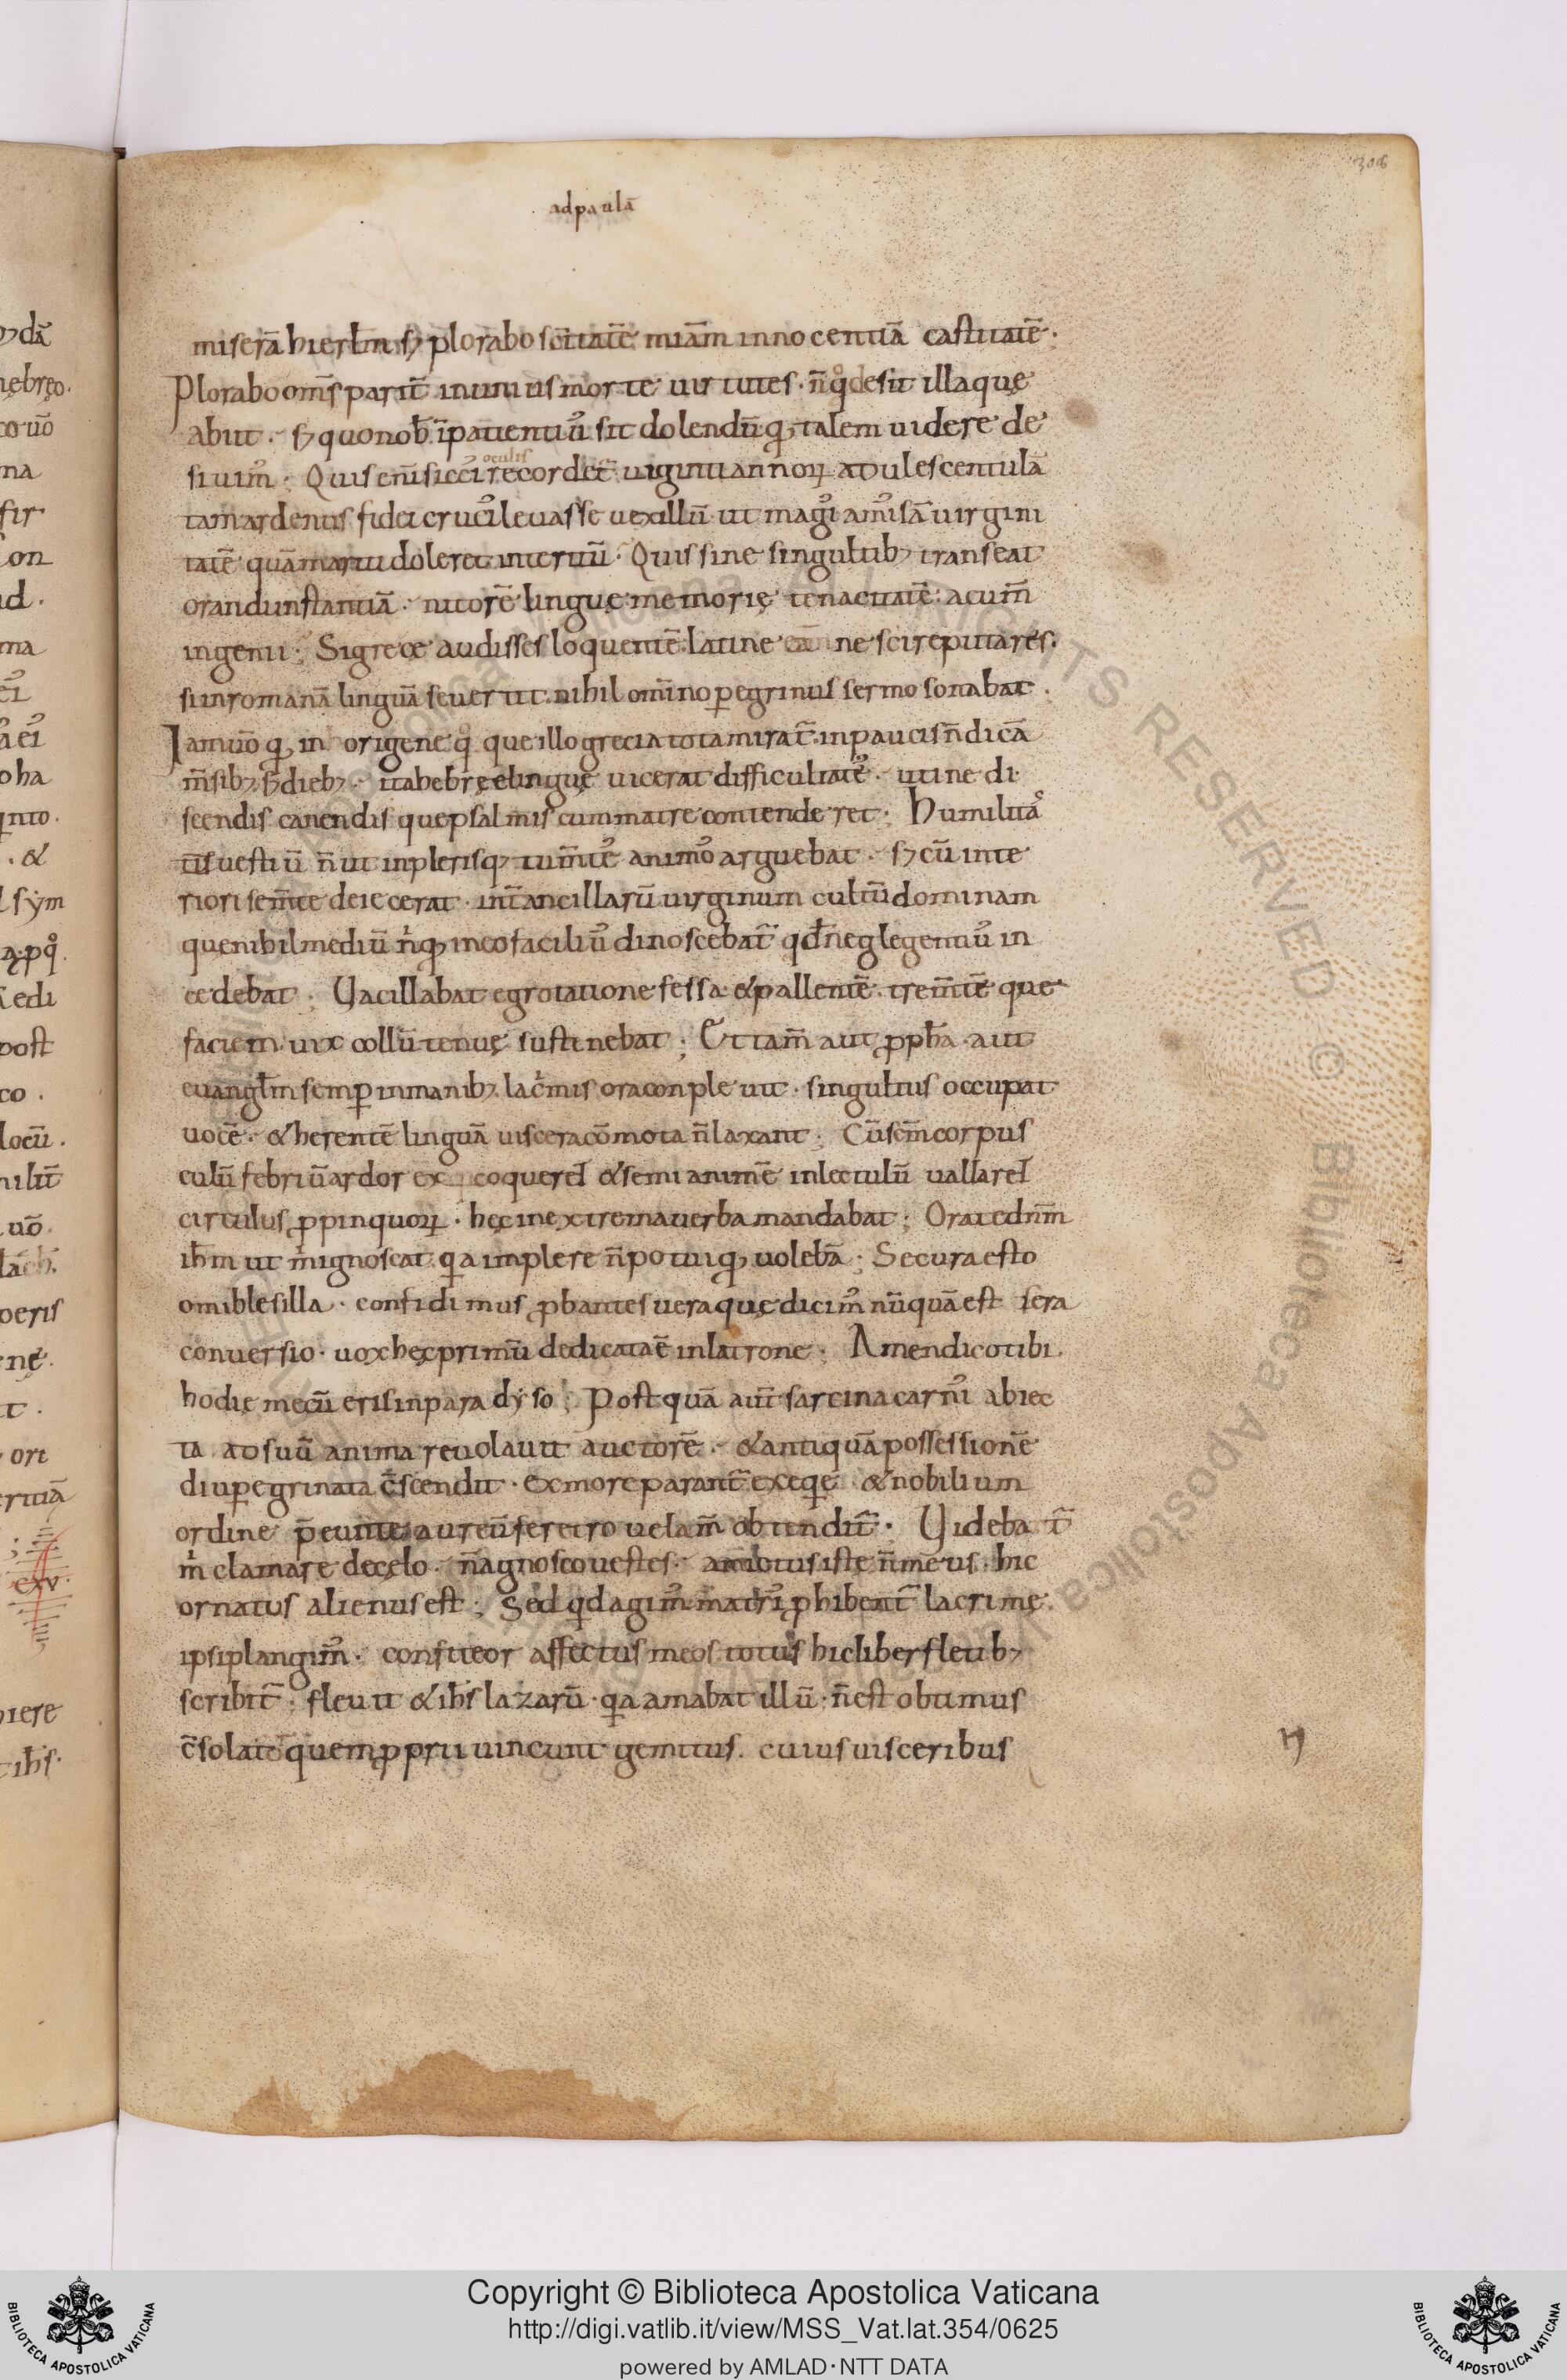 306
ad paulā
miserā hierłm sꝫ plorabo sc̄itatē miām innocentiā castitatē·
Plorabo om̄s parit̄ in unius morte uirtutes· n̄ qͦ desit illa quę
abiit· sꝫ quo nob̄ īpatientiꝰ sit dolendū qđ talem uidere de
siuim̄ꝰ· Quis eni̅ siccꝭ oculis recordet̄ uiginti annoꝝ adulescentulā
tam ardentis fidei crucꝭ leuasse uexillū ut magꝭ amissā uirgini
tatē quā mariti doleret interitū· Quis sine singultibꝫ transeat
orandi instantiā· nitorē linguę memorię tenacitatē· acum̄
ingenii· Si grece audisses loquentē latine eā nescire putares·
si in romanā linguā se uertit nihil omino peregrinus sermo sonabat·
Iam uō qđ in origene qͦ que illo grecia tota mirat̄ in paucis n̄ dicā
m̄sibꝫ sꝫ diebꝫ· ita hebręę linguę uicerat difficultatē· ut in edi
scendis canendis que psalmis cum matre contenderet· Humilitaͤ
tis uestiū n̄ ut in plerisqꝫ tum̄tē animō arguebat· sꝫ cū inte
riori se m̄te deiecerat· int̄ ancillarū uirginum cultū dominam
que nihil mediū n̄ qđ in eo faciliꝰ dinoscebat̄ qđ neglegentiꝰ in
cedebat· Uacillabat egrotatione fessa & pallentē trem̄tē que
faciem uix collū tenuę sustinebat· Et tam̄ aut ꝓpħa· aut
euangłm semp̄ in manibꝫ· lac̍mis ora conpleuit· singultus occupat
uocē· & herentē linguā uiscera cōmota n̄ laxant· Cū sc̄m corpus
culū febriū ardor ex coqueret & semianimē in lectulū uallaret
circulus ꝓpinquoꝝ· hęc in extrema uerba mandabat· Orate dnm̄
iħm ut m̍ ignoscat qa implere n̄ potui qđ uolebā· Secura esto
omi blesilla· confidimus ꝓbantes uera quę dicimꝰ nūquā est sera
conuersio· uox hęc primū dedicata ē in latrone· Amen dico tibi
hodie mecū eris in paradyso· Postquā aut̄ sarcina carnꝭ abiec
ta ad suū anima reuolauit auctorē· & antiquā possessionē
diu peregrinata c̄scendit· ex more parant̄ exeqę & nobilium
ordine p̄eunte aureū feretro uelam̄ obtendit̄· Uidebat̄
m̍ clamare de cęlo· n̄ agnosco uestes· amictus iste n̄ meus· hic
ornatus alienus est· Sed qd agimꝰ matrꝭ ꝓhibent̄ lacrimę
ipsi plangimꝰ· confiteor affectus meos totus hic liber fletibꝫ
scribit̄· fleuit & iħs lazarū· qa amabat illū· n̄ est obtimus
c̄solator quem ꝓprii uincunt gemitus· cuius uisceribus
Copyright © Biblioteca Apostolica Vaticana
http://digi.vatlib.it/view/MSS_Vat.lat.354/0625
powered by AMLAD·NTT DATA
BIBLIOTECA APOSTOLICA VATICANA
BIBLIOTECA APOSTOLICA VATICANA